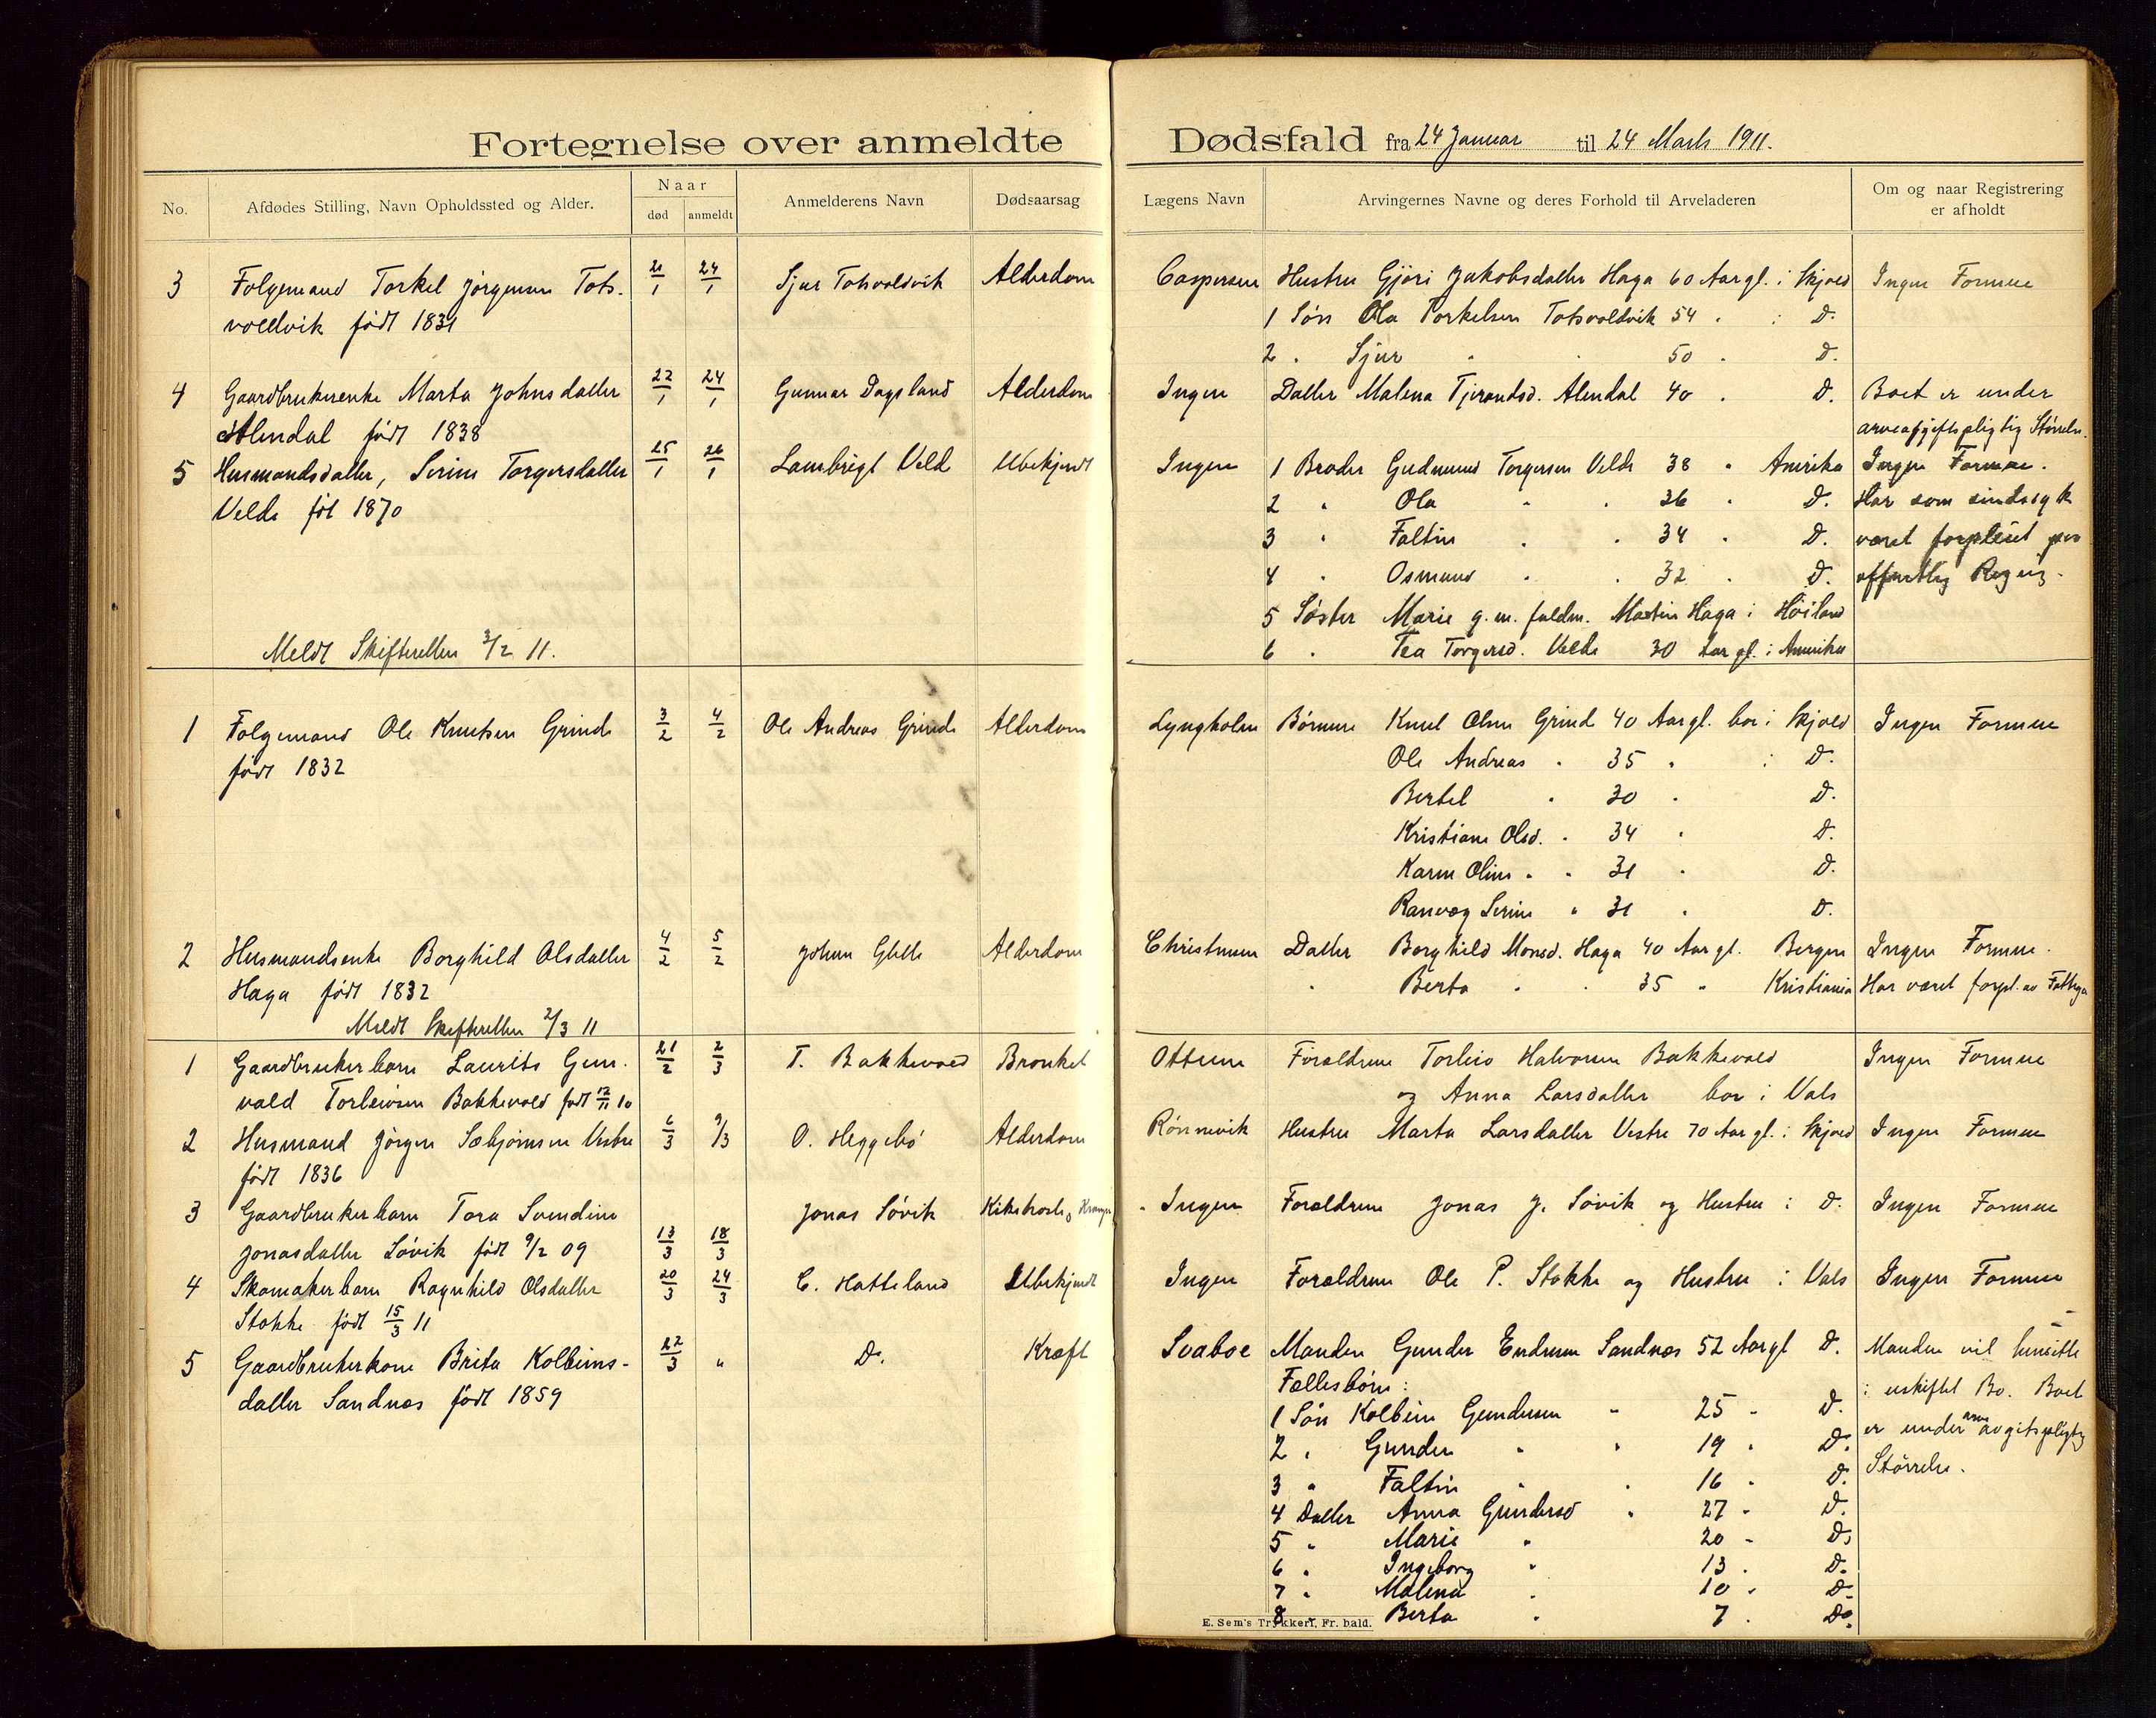 Fortegnelse over anmeldte Dødsfald fra 24 Januar til 24 Marts 1911.
No.
Afdødes Stilling, Navn Opholdssted og Alder.
Naar
død
anmeldt
Anmelderens Navn
Dødsaarsag
Lægens Navn
Arvingernes Navne og deres Forhold til Arveladeren
Om og naar Registrering
er afholdt
3 Folgemand Torkel Jørgensen Tots- 21/1 24/1 Sjur Totsvoldvik Alderdom Caspersen Hustru Gjøri Jakobsdatter Haga 60 Aar gl. i Skjold Ingen Formue
voldvik født 1831 1 Søn Ola Torkelsen Totsvoldvik 54 " i D.
2 " Sjur " " 50 " D.
4 Gaardbrukerenke Marta Johnsdatter 22/1 24/1 Gunnar Dagsland Alderdom Ingen Datter Malena Tjerandsd. Alendal 40 " D. Boet er under
Alendal født 1838 arveafgiftspligtig Størrelse.
5 Husmandsdatter, Serine Torgersdatter 25/1 26/1 Lambrigt Velde Ubekjendt Ingen 1 Broder Gudmund Torgersen Velde 38 " Amerika Ingen Formue.
Velde føt 1870 2 " Ola " " 36 " D. Har som sindssyk
3 " Faltin " " 34 " D. været forpleiet paa
4 " Osmund " " 32 " D. offentlig Regning.
5 Søster Marie g. m. fuldm. Martin Haga i Høiland
Meldt Skifteretten 3/2 11. 6 " Tea Torgersd. Velde 30 Aar gl. i Amerika
1 Folgemand Ole Knutsen Grinde 3/2 4/2 Ole Andreas Grinde Alderdom Lyngholm Børnene Knut Olsen Grind 40 Aar gl. bor i Skjold Ingen Formue
født 1832 Ole Andreas " 35 " i D.
Bertel " 30 " D.
Kristiane Olsd. " 34 " D.
Karen Oline " " 31 " D.
Ranvog Serine " 31 " D.
2 Husmandsenke Borghild Olsdatter 4/2 5/2 Johan Alderdom Christensen Datter Borghild Monsd. Haga 40 Aar gl. Bergen Ingen Formue.
Haga født 1832 " Berta " " 35 " Kristiania Har været forpl. av
Meldt Skifteretten 2/3 11
1 Gaardbrukerbarn Laurits Gun- 21/2 2/3 T. Bakkevold Bronkit Ottesen Forældrene Torleiv Halvorsen Bakkevold Ingen Formue
vald Torleivsen Bakkevold født 12/11 10 og Anna Larsdatter bor i Vats
2 Husmand Jørgen Sæbjørnsen Vestre 6/3 9/3 O. Heggebø Alderdom Rønnevik Hustru Marta Larsdatter Vestre 70 Aar gl. i Skjold Ingen Formue
født 1836
3 Gaardbrukerbarn Tora Svendine Jonas Søvik Kikhoste, Ingen Forældrene Jonas J. Søvik og Hustru i D. Ingen Formue
Jonasdatter Søvik født 9/2 09 13/3 18/3
4 Skomakerbarn Ragnhild Olsdatter 20/3 24/3 C. Hatteland Ubekjendt Ingen Forældrene Ole P. Stokke og Hustru i Vats Ingen Formue
Stokke født 15/3 11
5 Gaardbrukerkone Brita Kolbeins- 22/3 " D. Kræft Svaboe Manden Gunder Endresen Sandnes 52 Aar gl D. Manden vil hensitte
datter Sandnes født 1859 Fællesbørn: i uskiftet Bo. Boet
1 Søn Kolbein Gundersen " 25 " D. er under arveavgitspligtig
2 " Gunder " " 19 " D. Størrelse.
3 " Faltin " " 16 " D.
4 Datter Anna Gundersd " 27 " D.
5 " Marie " 20 " D.
6 " Ingeborg " 13 " D.
7 " Malena " 10 " D.
8 " Berta " 7 " D.
E. Sem's Trykkeri, Fr. hald.